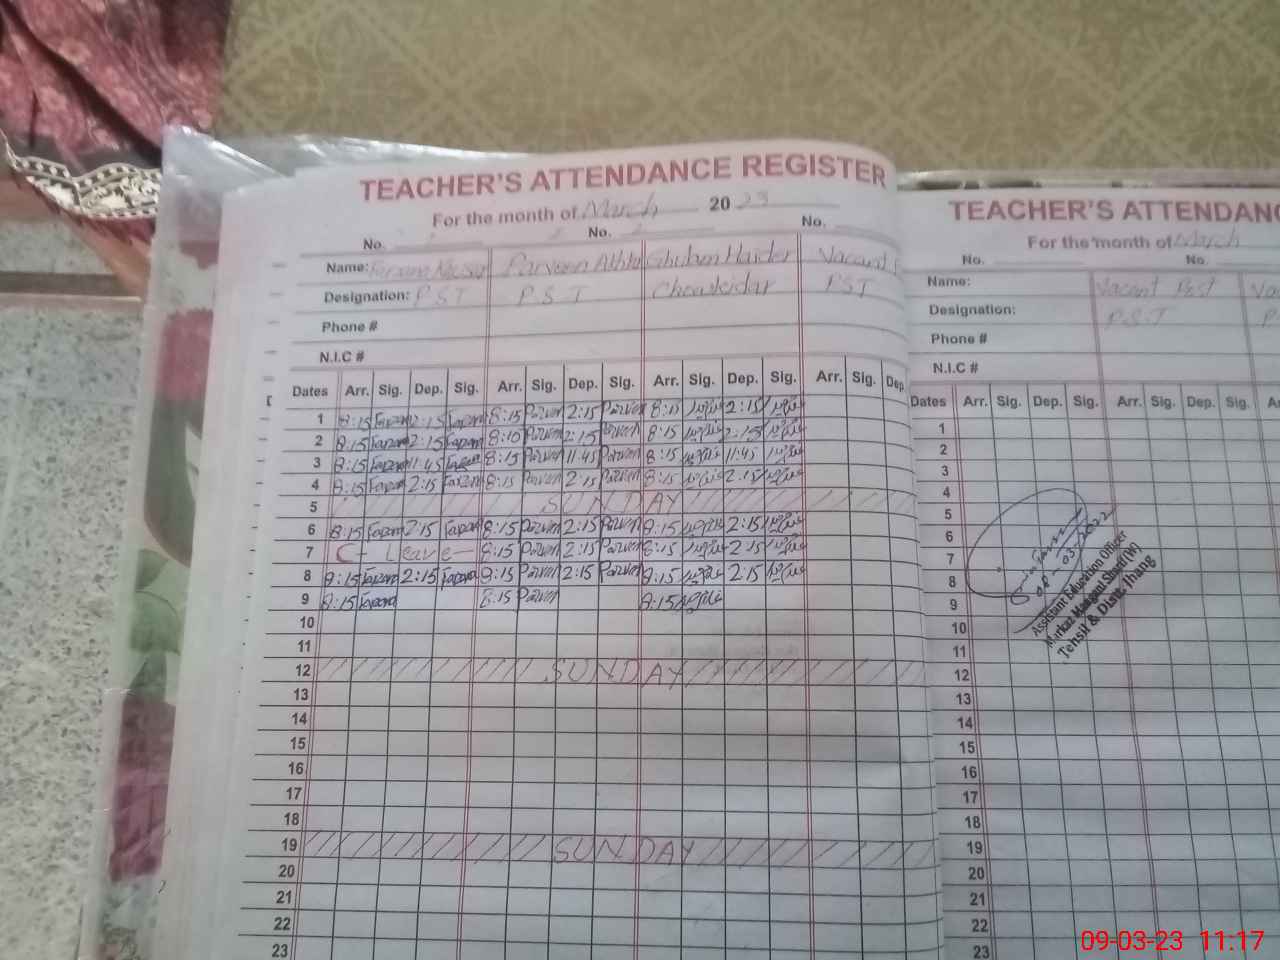 TEACHER'S ATTENDANCE REGISTER
For the month of March 2023
No. No. No.
Name: Farzana Kousar Parveen Akhtar Ghulam Haider Vacant
Designation: PST PST Chowkidar PST
Phone #
N.I.C #
Dates Arr. Sig. Dep. Sig. Arr. Sig. Dep. Sig. Arr. Sig. Dep. Sig. Arr. Sig. Dep.
1 8:15 2:15 8:15 Parveen 2:15 Parveen 8:15 2:15
2 8:15 2:15 8:10 Parveen 2:15 Parveen 8:15 2:15
3 8:15 11:45 8:15 Parveen 11:45 Parveen 8:15 11:45
4 8:15 2:15 8:15 Parveen 2:15 Parveen 8:15 2:15
5 SUNDAY
6 8:15 2:15 8:15 Parveen 2:15 Parveen 8:15 2:15
7 C - Leave 8:15 Parveen 2:15 Parveen 8:15 2:15
8 8:15 2:15 8:15 Parveen 2:15 Parveen 8:15 2:15
9 8:15 8:15 Parveen 8:15
10
11
12 SUNDAY
13
14
15
16
17
18
19 SUNDAY
20
21
22
23
TEACHER'S ATTENDANC
For the month of March
No. No.
Name: Vacant Post Va
Designation: P.S.T P
Phone #
N.I.C #
Dates Arr. Sig. Dep. Sig. Arr. Sig. Dep. Sig. A
1
2
3
4
5
6
7
8
9
10
11
12
13
14
15
16
17
18
19
20
21
22
23
08-03-2022
Assistant Education Officer
Markaz Mangani Sharif (W)
Tehsil & Distt. Jhang
09-03-23 11:17